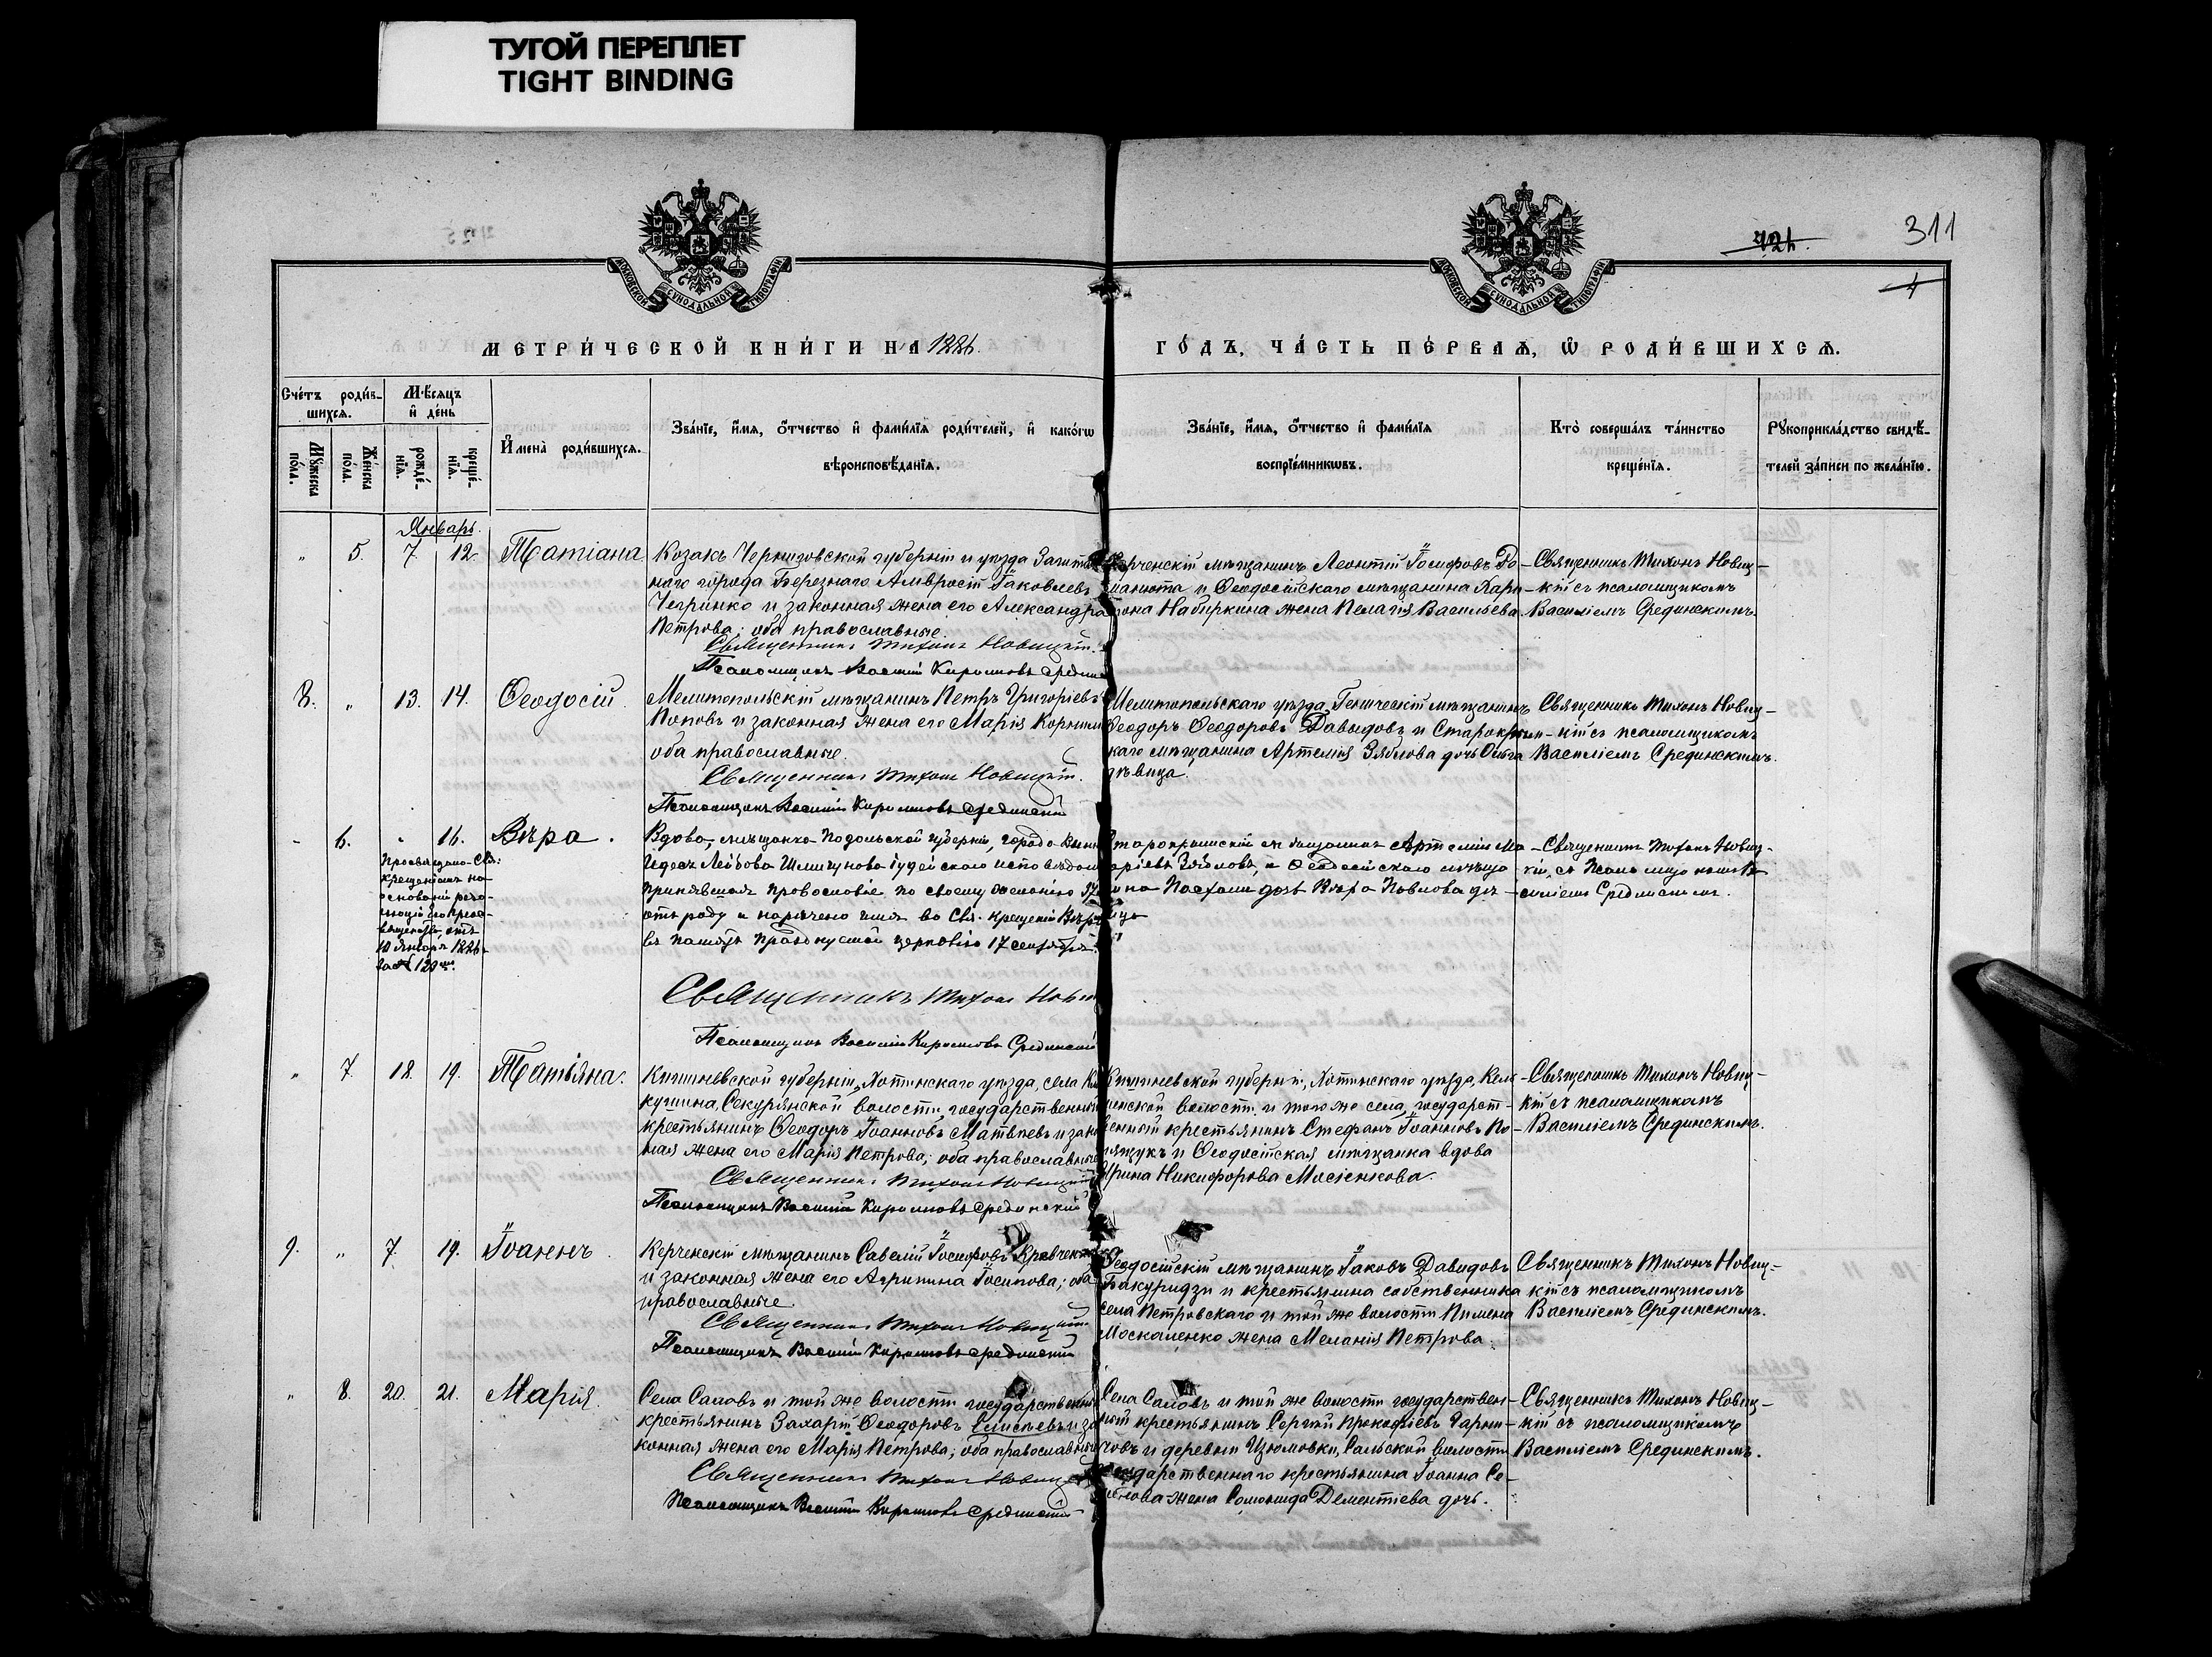 ТУГОЙ ПЕРЕПЛЕТ
TIGHT BINDING
311
МОСКОВСКОЙ СѴНОДАЛЬНОЙ ТИПОГРАФІИ
МОСКОВСКОЙ СѴНОДАЛЬНОЙ ТИПОГРАФІИ
МЕТРИ́ЧЕСКОЙ КНИ́ГИ НА 1886.
ГО́ДЪ, ЧА́СТЬ ПЕ́РВАѦ, Ѡ РОДИ́ВШИХСѦ.
Сче́тъ роди́в-
шихсѧ.
Мꙋ́жеска по́ла.
Же́нска по́ла.
Мѣ́сяцъ
и҆ де́нь
рожде́-
нїѧ.
креще́-
нїѧ.
И҆мена̀ роди́вшихсѧ.
Зва́нїе, и҆́мѧ, ѻ҆́тчество и҆ фами́лїѧ роди́телей, и҆ како́гѡ
вѣроисповѣ́данїѧ.
Зва́нїе, и҆́мѧ, ѻ҆́тчество и҆ фами́лїѧ
воспрїе́мникѡвъ.
Кто̀ соверша́лъ та́инство
креще́нїѧ.
Рꙋкоприкла́дство свидѣ́-
телей за́писи по жела́нїю.
Январь.
" 5. 7. 12. Татіана
Козакъ Черниговской губерніи и уѣзда Заштат
наго города Березнаго Амвросій Іаковлевъ
Чегринко и законная жена его Александра
Петрова; оба православные.
Священникъ Тихонъ Новицкій.
Псаломщикъ Василій Кирилловъ Средин
Керченскій мѣщанинъ Леонтій Іосифовъ Ро-
манюта и Ѳеодосійскаго мѣщанина Хари-
тона Набиркина жена Пелагія Васильева.
Священникъ Тихонъ Новиц-
кій съ псаломщикомъ
Василіемъ Срединскимъ.
8. " 13. 14. Ѳеодосій.
Мелитопольскій мѣщанинъ Петръ Григорьевъ
Поповъ и законная жена его Марія Корнил
оба православные.
Священникъ Тихонъ Новицкій.
Псаломщикъ Василій Кирилловъ Срединскій
Мелитопольскаго уѣзда, Геническій мѣщанинъ
Ѳеодоръ Ѳеодоровъ Давыдовъ и Старокрым-
скаго мѣщанина Артемія Зяблова дочь Ольга
дѣвица.
Священникъ Тихонъ Новиц-
кій съ псаломщикомъ
Василіемъ Срединскимъ.
" 6. " 16. Вѣра.
Просвѣщена Св:
крещеніемъ на
основаніи резо-
люціи Его Преос-
вященства, отъ
10 Января 1886
за № 129
Вдова, мѣщанка Подольской губерніи, города
Лейбова Шмигунова іудейскаго исповѣдан
принявшая православіе по своему желанію
отъ роду и наречено имя во Св. крещеніи Вѣра
въ память празднуемой церковію 17 сентября.
Священникъ Тихонъ Новиц
Псаломщикъ Василій Кирилловъ Срединскій
Старокрымскій мѣщанинъ Артемій Ма-
Зябловъ, и Ѳеодосійскаго мѣща
дочь Вѣра Павлова дѣ-
вица
Священникъ Тихонъ Новиц-
кій, съ Псаломщикомъ Ва
силіемъ Срединскимъ.
" 7. 18. 19. Татьяна.
Кишиневской губерніи, Хотинскаго уѣзда, села
кушина, Секурянской волости, государственный
крестьянинъ Ѳеодоръ Іоанновъ Матвѣевъ и закон
ная жена его Марія Петрова; оба православные
Священникъ Тихонъ Новицкій
Псаломщикъ Василій Кирилловъ Срединскій
Кишиневской губерніи, Хотинскаго уѣзда, Кель-
менской волости и того же села, государст-
венный крестьянинъ Стефанъ Іоанновъ По-
лящукъ и Ѳеодосійская мѣщанка вдова
Ирина Никифорова Масіенкова.
Священникъ Тихонъ Новиц-
кій съ псаломщикомъ
Василіемъ Срединскимъ.
9. " 7. 19. Іоаннъ.
Керченскій мѣщанинъ Савелій Іосифовъ Кравченко
и законная жена его Агрипина Іосипова; оба
православные
Священникъ Тихонъ Новицкій
Псаломщикъ Василій Кирилловъ Срединскій
Ѳеодосійскій мѣщанинъ Іаковъ Давидовъ
Бакуридзи и крестьянина собственника
села Петровскаго и той же волости Пимена
Москаленко жена Меланія Петрова.
Священникъ Тихонъ Новиц-
кій съ псаломщикомъ
Василіемъ Срединскимъ.
" 8. 20. 21. Марія.
Села Саловъ и той же волости государственный
крестьянинъ Захарій Ѳеодоровъ Елисѣевъ и за
конная жена его Марія Петрова; оба православные
Священникъ Тихонъ Новиц
Псаломщикъ Василій Кирилловъ Срединскій
Села Саловъ и той же волости государствен-
ный крестьянинъ Сергій Прокофіевъ Гарни-
човъ и деревни Изюмовки, Сальской волости
государственнаго крестьянина Іоанна Се-
жена Соломонида Дементіева дочь.
Священникъ Тихонъ Новиц-
кій съ псаломщикомъ
Василіемъ Срединскимъ.